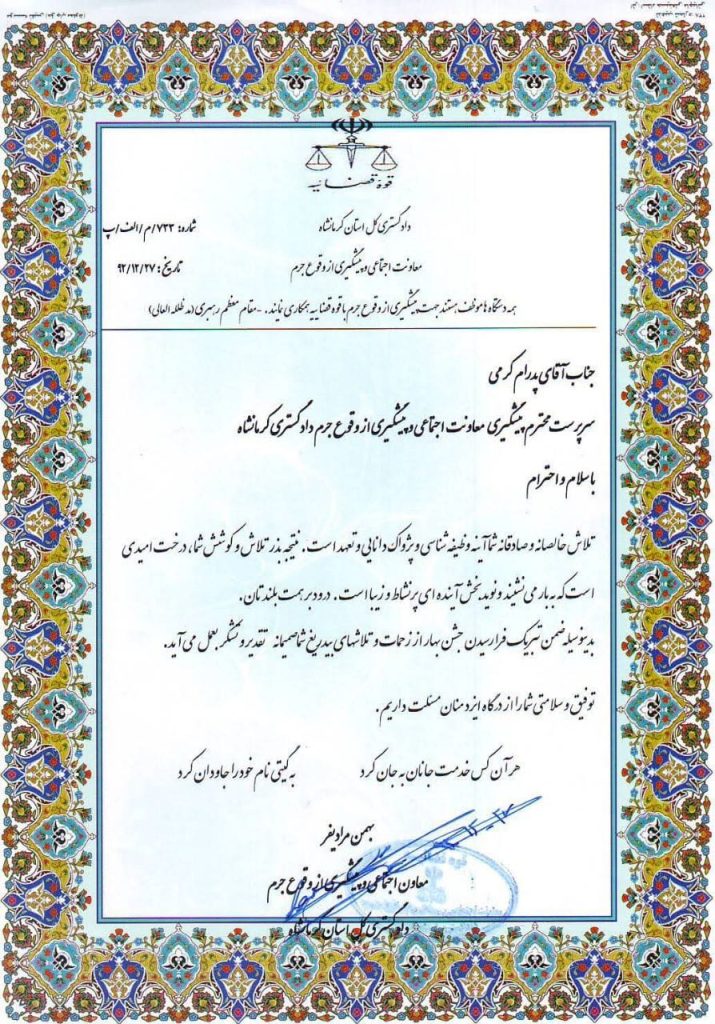 قوه قضائیه
دادگستری کل استان کرمانشاه
شماره: ۷۳۳/م/الف/پ
معاونت اجتماعی و پیشگیری از وقوع جرم
تاریخ: ۹۲/۱۲/۲۷
همه دستگاه ها موظف هستند جهت پیشگیری از وقوع جرم با قوه قضاییه همکاری نمایند. - مقام معظم رهبری (مد ظله العالی)
جناب آقای پدرام کرمی
سرپرست محترم پیشگیری معاونت اجتماعی و پیشگیری از وقوع جرم دادگستری کرمانشاه
با سلام و احترام
تلاش خالصانه و صادقانه شما آینه وظیفه شناسی و پژواک دانایی و تعهد است. نتیجه بذر تلاش و کوشش شما، درخت امیدی
است که به بار می نشیند و نوید بخش آینده ای پرنشاط و زیبا است. درود بر همت بلندتان.
بدینوسیله ضمن تبریک فرارسیدن جشن بهار از زحمات و تلاشهای بیدریغ شما صمیمانه تقدیر و تشکر بعمل می آید.
توفیق و سلامتی شما را از درگاه ایزد منان مسئلت داریم.
هر آن کس خدمت جانان به جان کرد به گیتی نام خود را جاودان کرد
بهمن مرادیفر
معاون اجتماعی و پیشگیری از وقوع جرم
دادگستری کل استان کرمانشاه